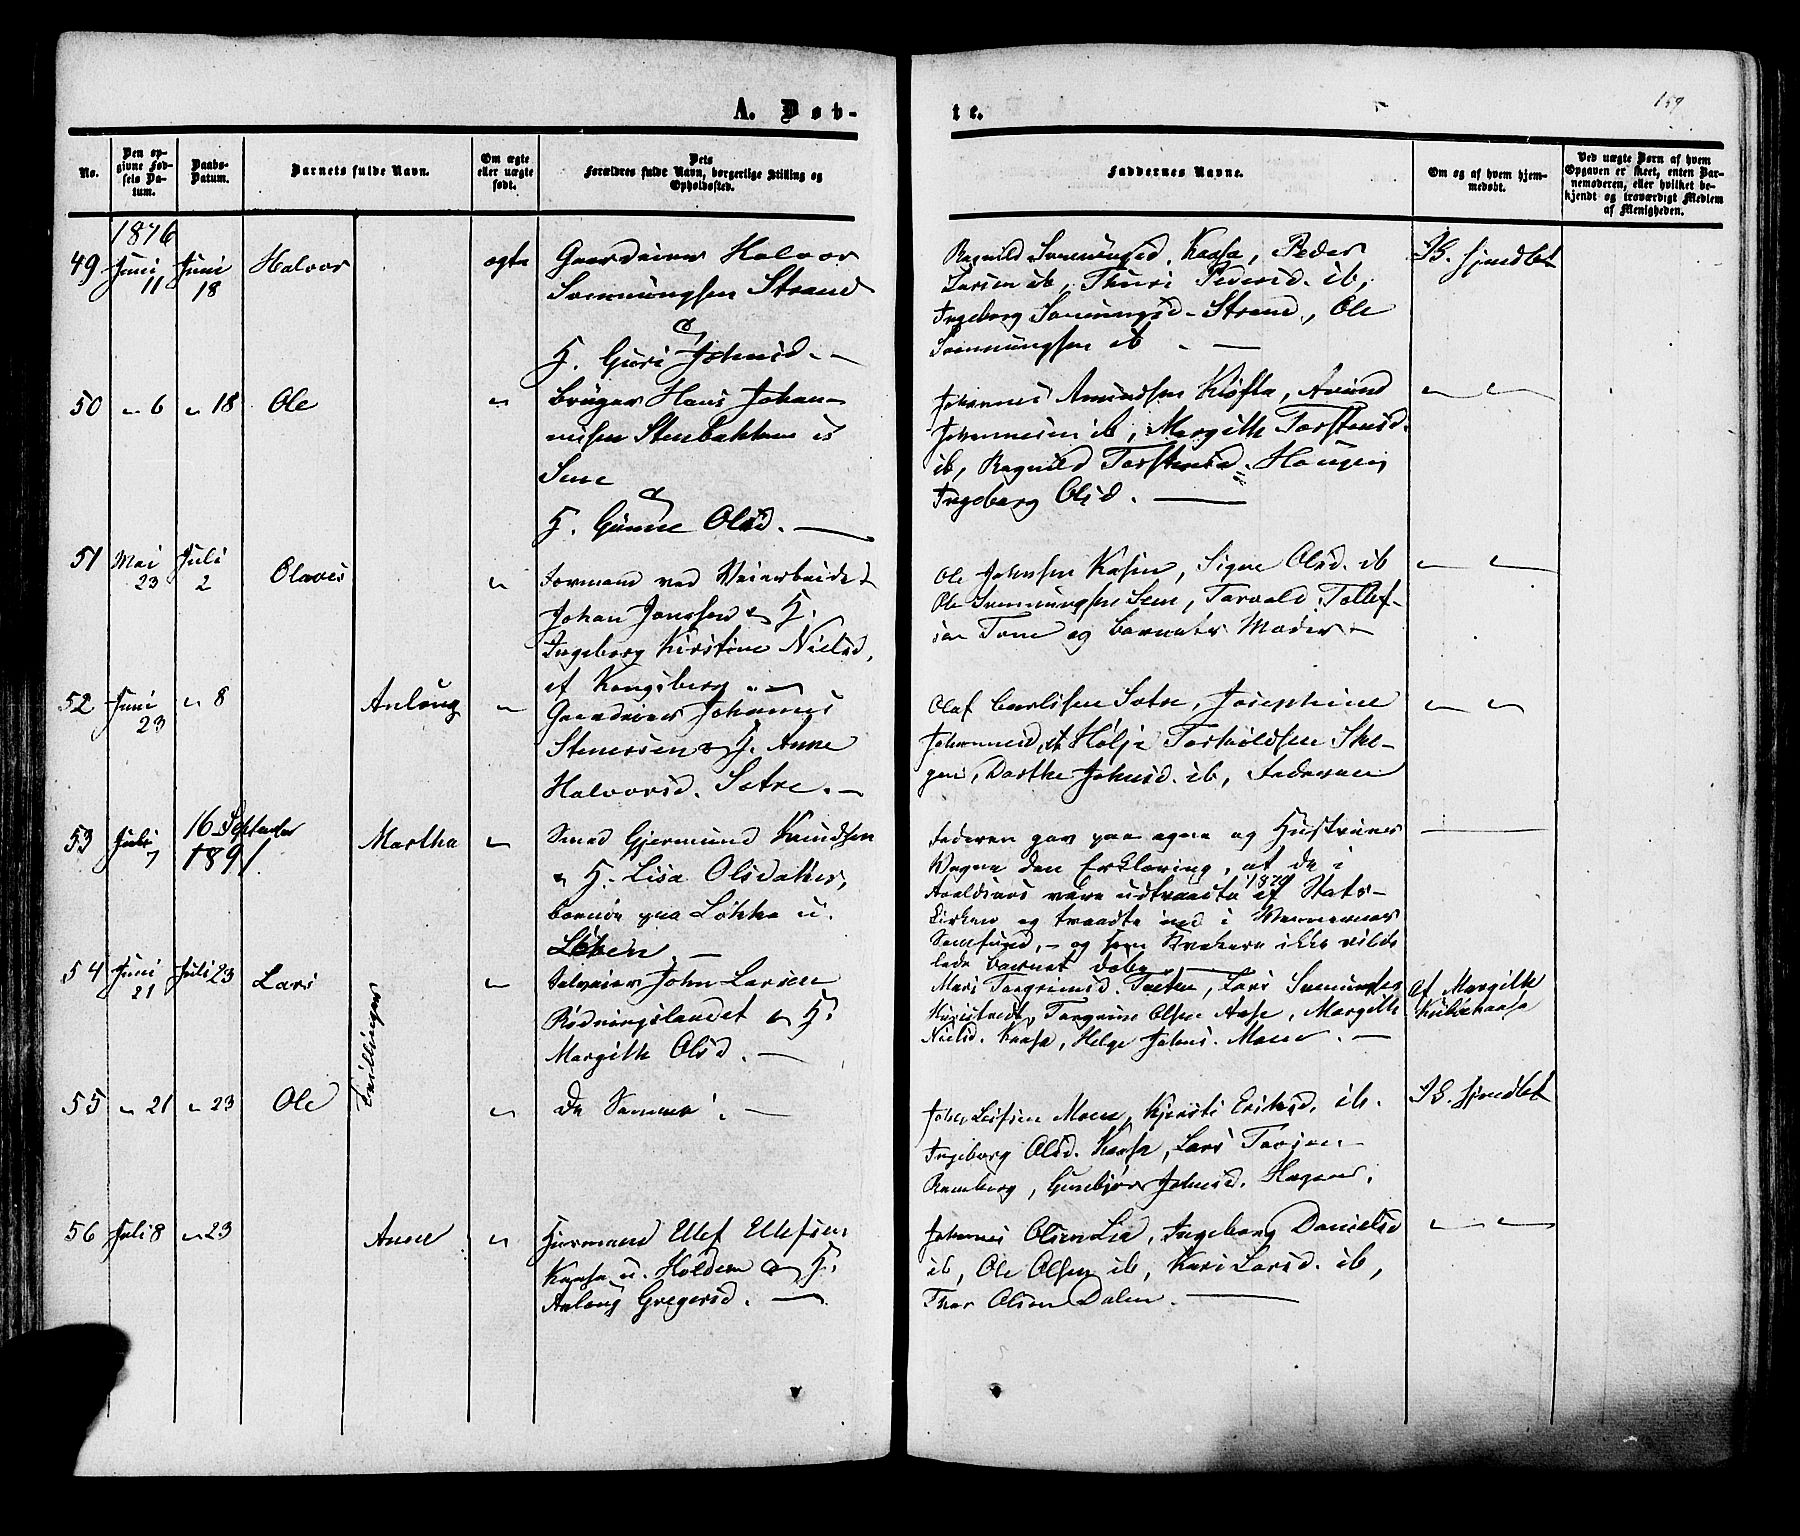 A. Døb-
te.
159
No.
Den op-
givne Fød-
sels Da-
tum.
Daabs-
Datum.
Barnets fulde Navn.
Om ægte
eller uægte
født.
Dets
Forældres fulde Navn, borgerlige Stilling og
Opholdssted.
Faddernes Navne.
Om og af hvem hjem-
medøbt.
Ved uægte Børn af hvem
Opgaven er skeet, enten Bar-
nemoderen, eller hvilket be-
kjendt og troværdigt Medlem
af Menigheden.
1876
49 Juni 11 Juni 18 Halvor ægte
Gaardeier Halvor
Svennungsen Strand
&
H. Guri Johnsd. —
Ragnild Svennungsd. Kaasa, Peder
Larsen ib, Thuri Pedersd. ib,
Ingeborg Svennungsd. Strand, Ole
Svennungsen ib —
B. hjmdbt
50 " 6 " 18 Ole "
Bruger Hans Johan-
nesen Stenbakken u
Sem
&
H. Gunne Olsd. —
Johannes Amundsen Kløfta, Avund
Johannesen ib, Margith Torstensd.
ib, Ragnild Torstensd. Haugen,
Ingeborg Olsd. —
" "
51 Mai 23 Juli 2 Olaves "
Formand ved Veiarbeidet
Johan Jonssen & H.
Ingeborg Kirstine Nielsd.
af Kongsberg. —
Ole Johnsen Kasin, Signe Olsd. ib
Ole Svennungsen Sem, Torvald Tollef-
sen Tome og Barnets Moder —
" "
52 Juni 23 " 8 Anlaug "
Gaardeier Johannes
Stenersen & H. Anne
Halvorsd. Sætre. —
Olaf Carlsen Sætre, Josephine
Johannesd. ib, Hølje Torkildsen Ske-
gen, Dorthe Johnsd. ib, Faderen
" "
53 Juli 7 16 September 1891 Martha "
Smed Gjermund Knudsen
& H. Lisa Olsdatter,
boende paa Løkka u.
Løken —
Faderen gav paa egne og Hustrues
Vegne den Erklæring, at de i
Aadlsvas vare udtraadte 1870 af Stats-
kirken og traadte ind i Vennernes
Samfund, — og som Kvækere ikke vilde
lade Barnet døbe. —
—
54 Juni 21 Juli 23 Lars "
Selveier John Larsen
Rødningslandet & H.
Margith Olsd. —
Mari Torgrimsd. Tveten, Lars Svennungsen
Torgrim Olsen Aase, Margith
Nielsd. Kaasa, Helge Johns. Moen. —
af Margith
Kaasa
Tvillinger
55 " 21 " 23 Ole "
De Samme. —
John Leifsen Moen, Kjersti Eriksd. ib.
Ingeborg Olsd. Kaasa, Lars Torjen
Ramberg, Gunbjør Johnsd. Hagen.
B. hjmdbt
56 Juli 8 " 23 Anne "
Huusmand Ellef Ellefsen
Kaasa u. Holden & H.
Anlaug Gregersd. —
Johannes Olsen Lia, Ingeborg Danielsd
ib, Ole Olsen ib, Kari Larsd. ib,
Thor Olsen Dalen. —
" "